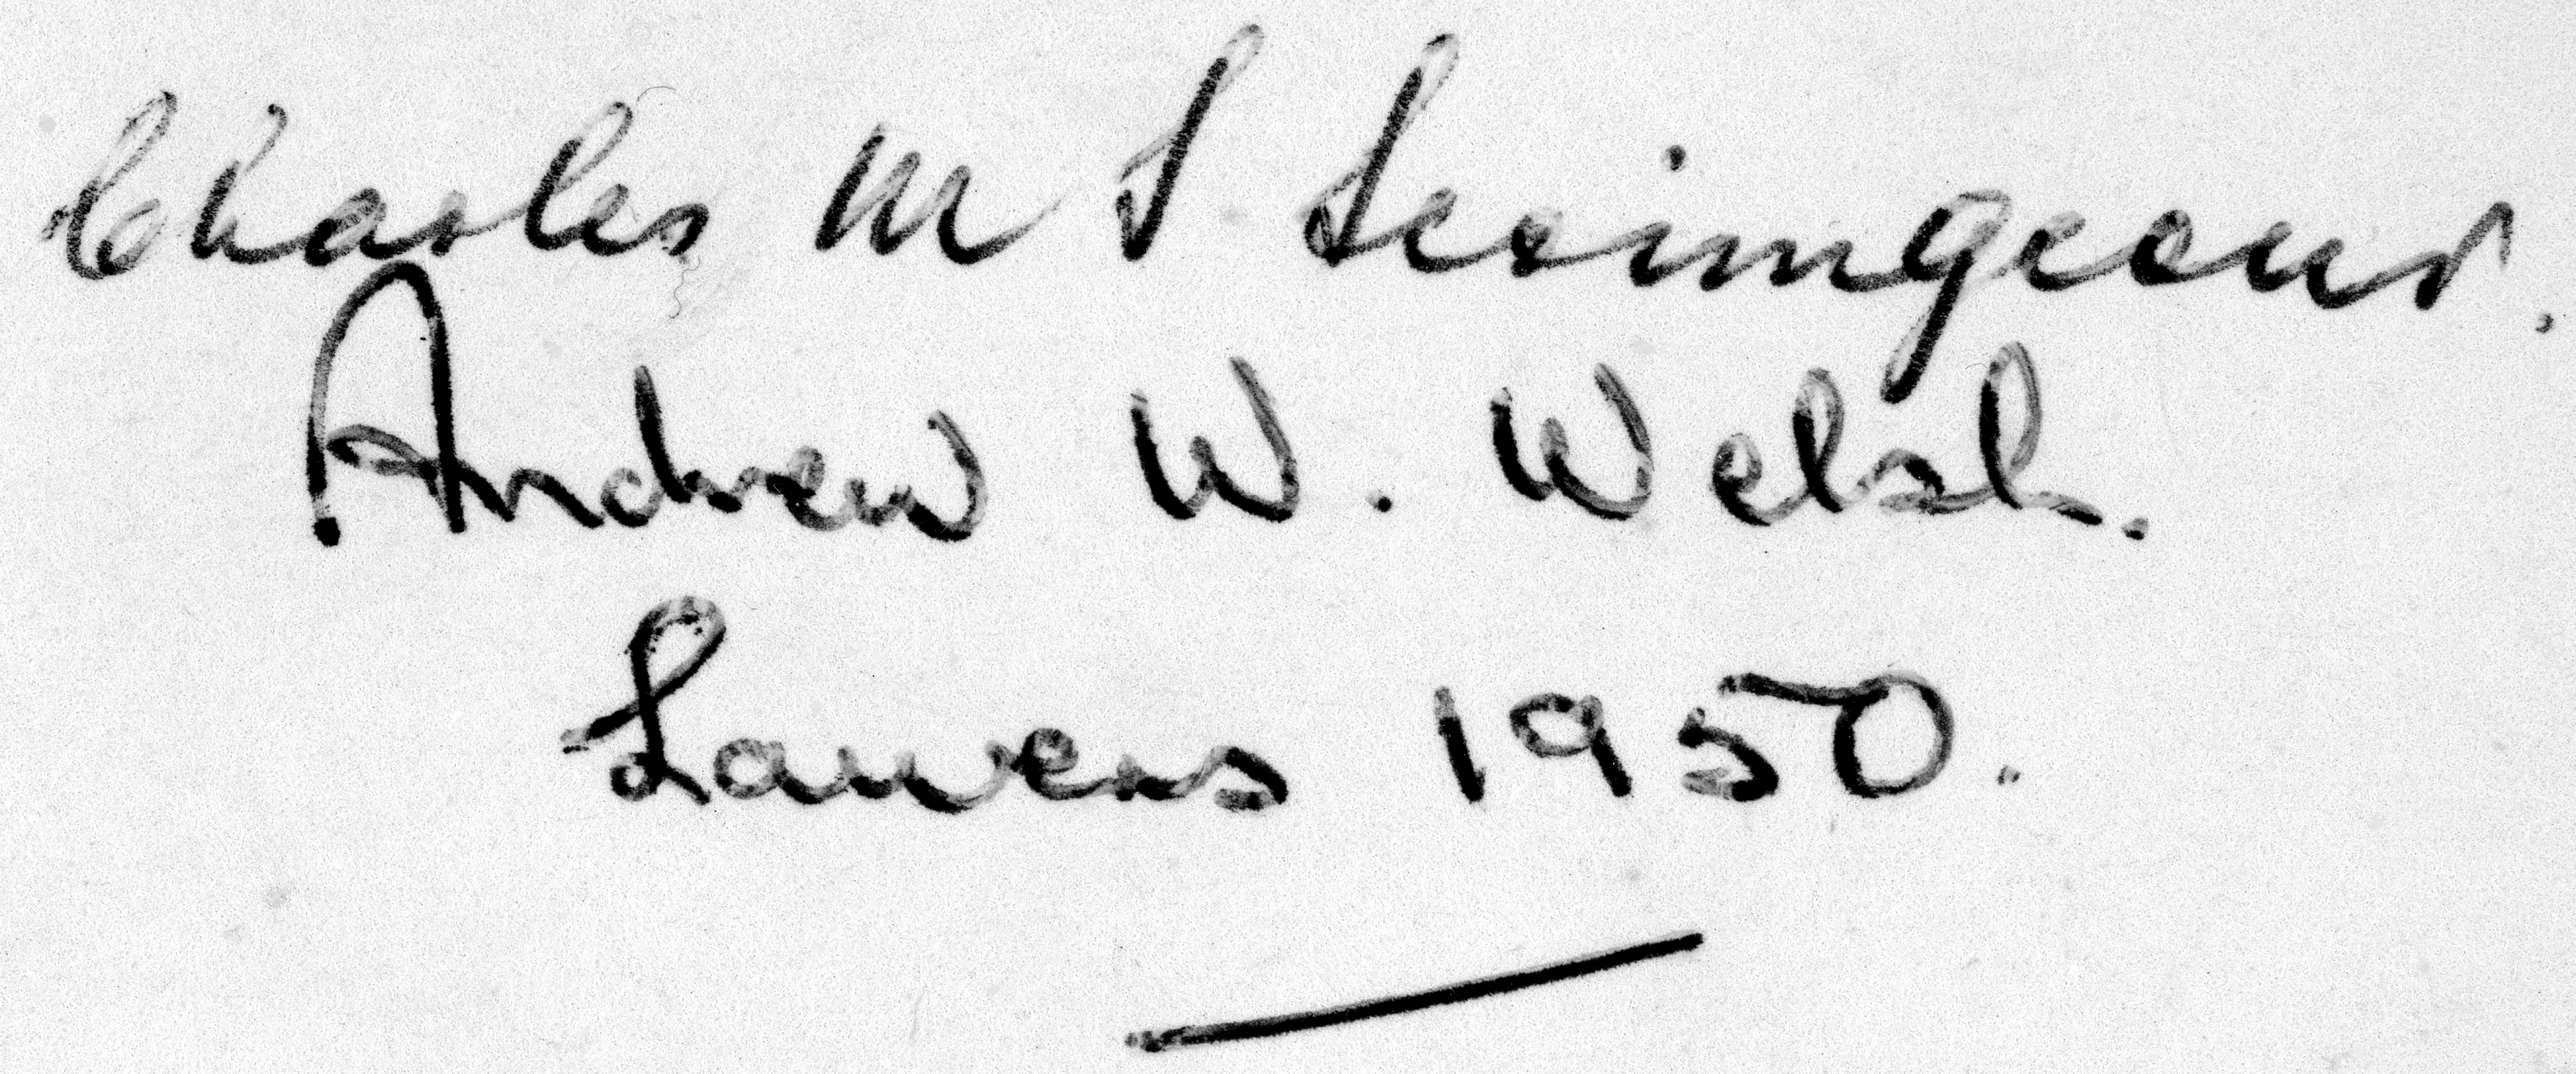 Charles M S Scrimgeour.
Andrew W. Welsh.
Lawers 1950.